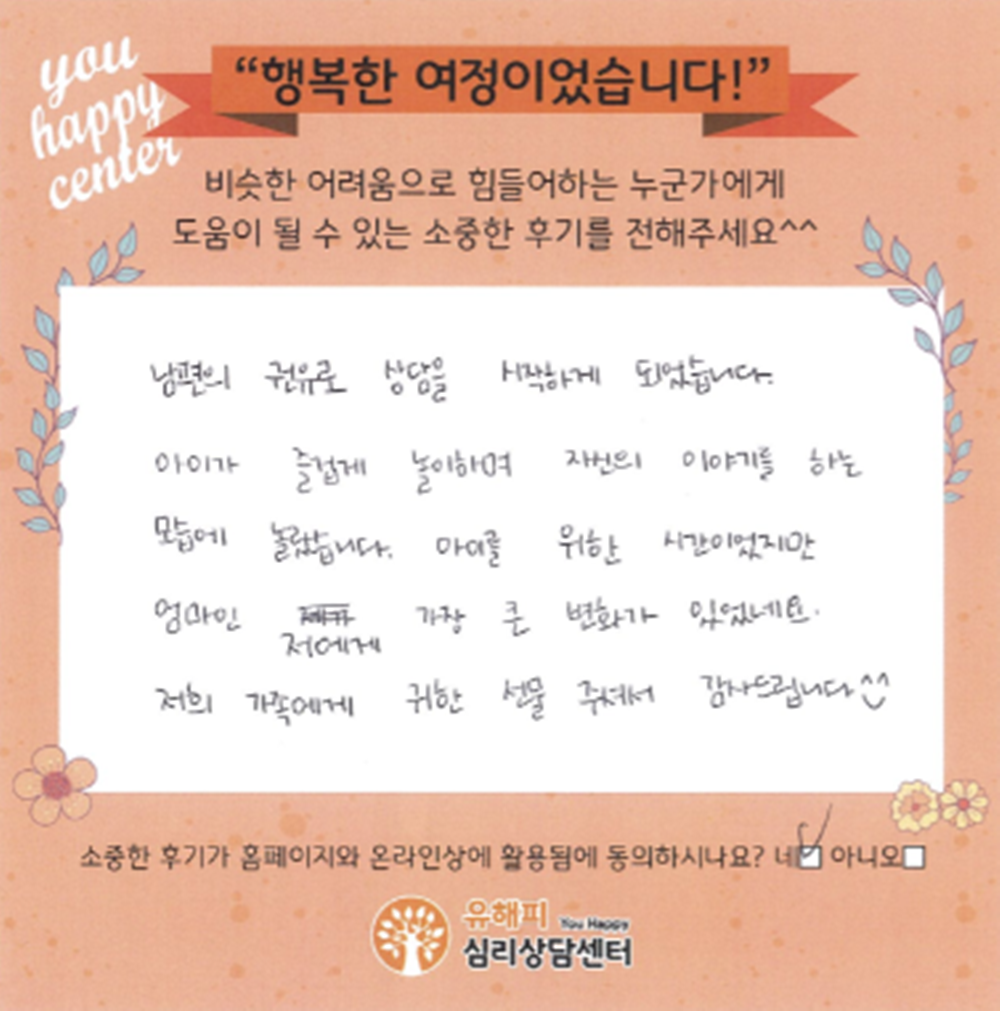 you
happy
center
“행복한 여정이었습니다!”
비슷한 어려움으로 힘들어하는 누군가에게
도움이 될 수 있는 소중한 후기를 전해주세요^^
남편의 권유로 상담을 시작하게 되었습니다.
아이가 즐겁게 놀이하며 자신의 이야기를 하는
모습에 놀랐습니다. 아이를 위한 시간이었지만
엄마인 가장 큰 변화가 있었네요.
저에게
저희 가족에게 귀한 선물 주셔서 감사드립니다^^
소중한 후기가 홈페이지와 온라인상에 활용됨에 동의하시나요? 네 아니오
유해피 You Happy
심리상담센터